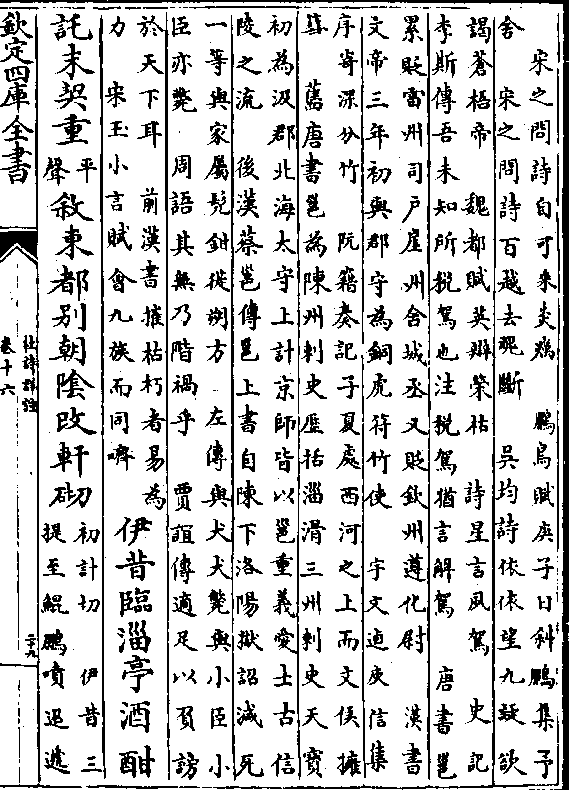 宋之問詩自可乘炎 鵩鳥賦庚子日斜鵩集予
舍 宋之問詩百越去魂斷 吳均詩依依望九疑欲
謁蒼梧帝 魏都賦英辯榮枯 詩星言夙駕 史記
李斯傳吾未知所稅駕也注稅駕猶言解駕 唐書邕
累貶雷州司戶崖州舍城丞又貶欽州遵化尉 漢書
文帝三年初與郡守為銅虎符竹使 宇文逌庾信集
序寄深分竹 阮籍奏記子夏處西河之上而文侯擁
篲 舊唐書邕為陳州刺史歷括淄滑三州刺史天寶
初為汲郡北海太守上計京師皆以邕重義愛士古信
陵之流 後漢蔡邕傳邕上書自陳下洛陽獄詔減死
一等與家屬髠鉗從朔方 左傳與犬犬斃與小臣小
臣亦斃 周語其無乃階禍乎 賈誼傳適足以負謗
於天下耳 前漢書摧枯朽者易為
力 宋玉小言賦會九族而同嚌
伊昔臨淄亭酒酣
託末契重
平
聲
敘東都别朝陰改軒砌
初計切 伊昔三
提至鯤鵬噴迅遞
欽定四庫全書
杜詩詳註
卷十六
二十九